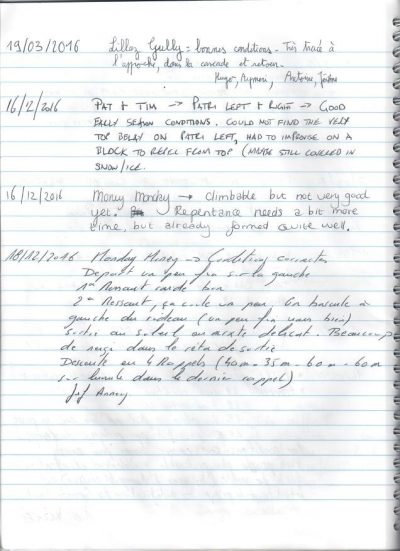 19/03/2016 Lillaz Gully = bonnes conditions - Très tracé à
l'approche, dans la cascade et retour.
Hugo, Aymeric, Antoine, Jérôme
16/2/2016 PAT + TIM → PATRI LEFT + RIGHT → GOOD
EARLY SEASON CONDITIONS. COULD NOT FIND THE VERY
TOP BELAY ON PATRI LEFT, HAD TO IMPROVISE ON A
BLOCK TO REBEL FROM TOP (MAYBE STILL COVERED IN
SNOW/ICE.
16/12/2016 Money Monday → climbable but not very good
yet. Repentance needs a bit more
time, but already formed quite well.
18/12/2016 Monday Money → Conditions correctes
Depart un peu fin sur la gauche
1er Ressaut raide bien
2e Ressaut, ça coule un peu. On bascule à
gauche du rideau (un peu fin mais bien)
Sortie au soleil ou mixte delicat. Beaucoup
de neige dans le de sortie
Descente en 4 Rappels (40m - 35m - 60m - 60m
sur lunule dans le dernier rappel)
Jef Annecy